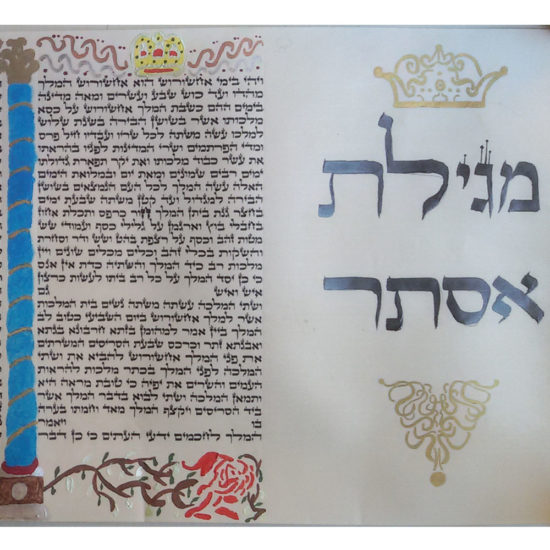 מגילת
אסתר
ויהי בימי אחשורוש הוא אחשורוש המלך
מהדו ועד כוש שבע ועשרים ומאה מדינה
בימים ההם כשבת המלך אחשורוש על כסא
מלכותו אשר בשושן הבירה בשנת שלוש
למלכו עשה משתה לכל שריו ועבדיו חיל פרס
ומדי הפרתמים ושרי המדינות לפניו בהראתו
את עשר כבוד מלכותו ואת יקר תפארת גדולתו
ימים רבים שמונים ומאת יום ובמלואת הימים
האלה עשה המלך לכל העם הנמצאים בשושן
הבירה למגדול ועד קטן משתה שבעת ימים
בחצר גנת ביתן המלך חור כרפס ותכלת אחוז
בחבלי בוץ וארגמן על גלילי כסף ועמודי שש
מטות זהב וכסף על רצפת בהט ושש ודר וסחרת
והשקות בכלי זהב וכלים מכלים שונים ויין
מלכות רב כיד המלך והשתיה כדת אין אנס
כי כן יסד המלך על כל רב ביתו לעשות כרצון
איש ואיש גם
ושתי המלכה עשתה משתה נשים בית המלכות
אשר למלך אחשורוש ביום השביעי כטוב לב
המלך ביין אמר למהומן בזתא חרבונא בגתא
ואבגתא זתר וכרכס שבעת הסריסים המשרתים
את פני המלך אחשורוש להביא את ושתי
המלכה לפני המלך בכתר מלכות להראות
העמים והשרים את יפיה כי טובת מראה היא
ותמאן המלכה ושתי לבוא בדבר המלך אשר
ביד הסריסים ויקצף המלך מאד וחמתו בערה
בו ויאמר
המלך לחכמים ידעי העתים כי כן דבר